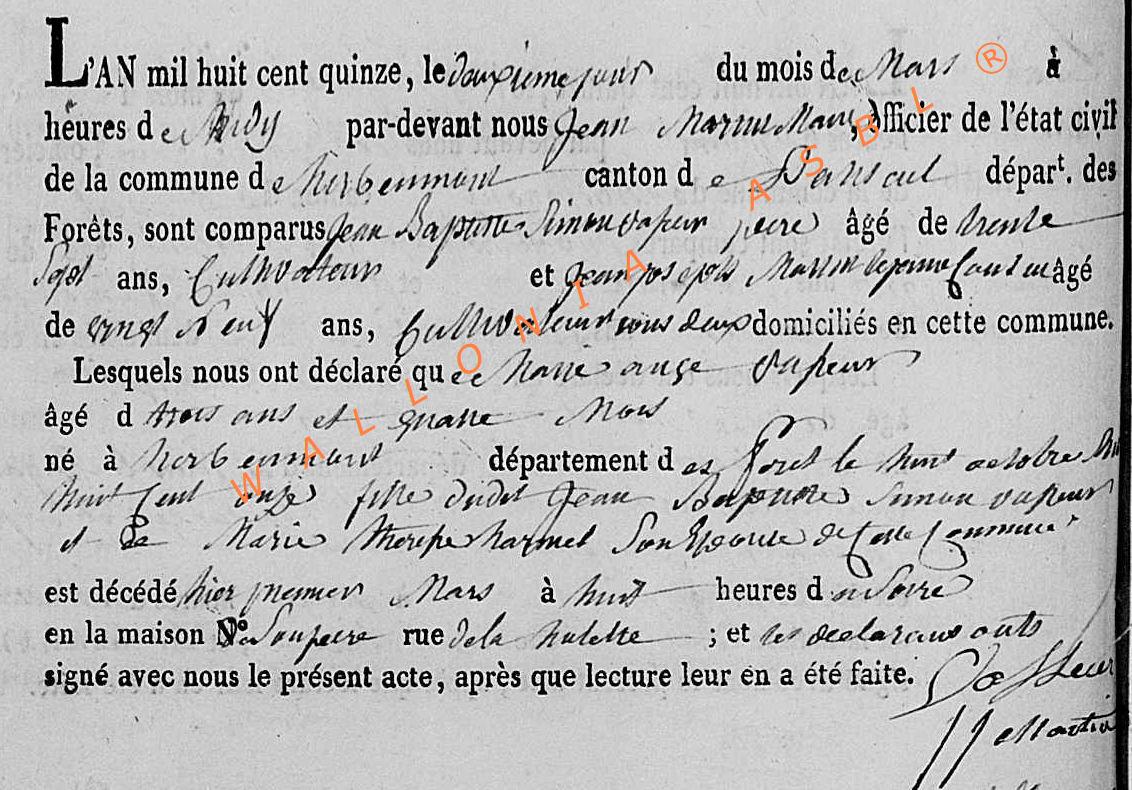 L'AN mil huit cent quinze, le deuxieme jour du mois de Mars à
heures de Midy par-devant nous Jean Martin Maire, officier de l'état civil
de la commune d'herbeumont canton de Paliseul départ. des
Forêts, sont comparus Jean Baptiste Simon vasseur pere âgé de trente
Sept ans, Cultivateur et Jean joseph Martin le jeune Cousin âgé
de vingt Neuf ans, Cultivateur tous deux domiciliés en cette commune.
Lesquels nous ont déclaré que Marie ange vasseur
âgé d trois ans et quatre Mois
né à herbeumont département des foret le huit octobre Mil
huit Cent onze fille dudit Jean Baptiste Simon vasseur
et de Marie therese harmel Son Epouse de Cette Commune
est décédé hier premier Mars à huit heures du Soire
en la maison N° de Son pere rue de la hulette ; et les declarans onts
signé avec nous le présent acte, après que lecture leur en a été faite.
Vasseur
JJ Martin
WALLONIA ASBL ®